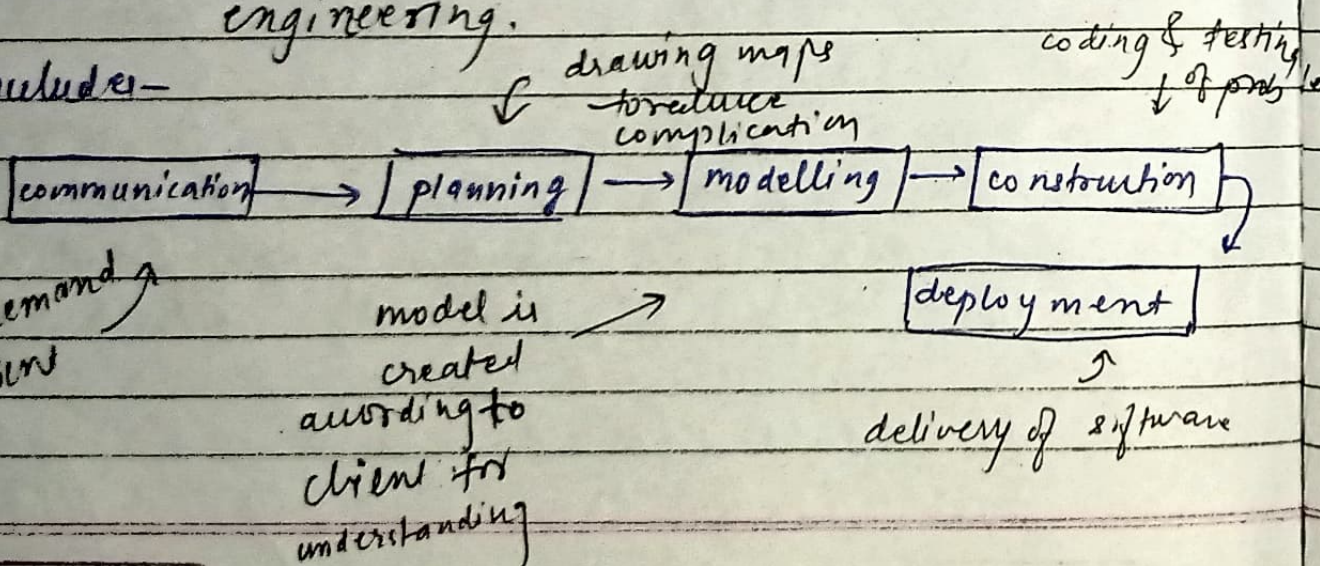 engineering.
coding & testing
drawing maps
to reduce
complication
communication → planning → modelling → construction
deployment
model is
created
according to
client for
understanding
delivery of software